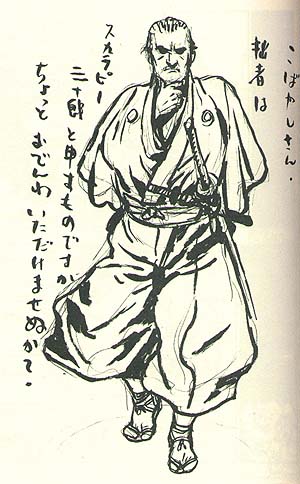 こばやしさん.
拙者は
スカラピー
三十郎と申すものですが
ちょっと おでんわ いただけませぬか?